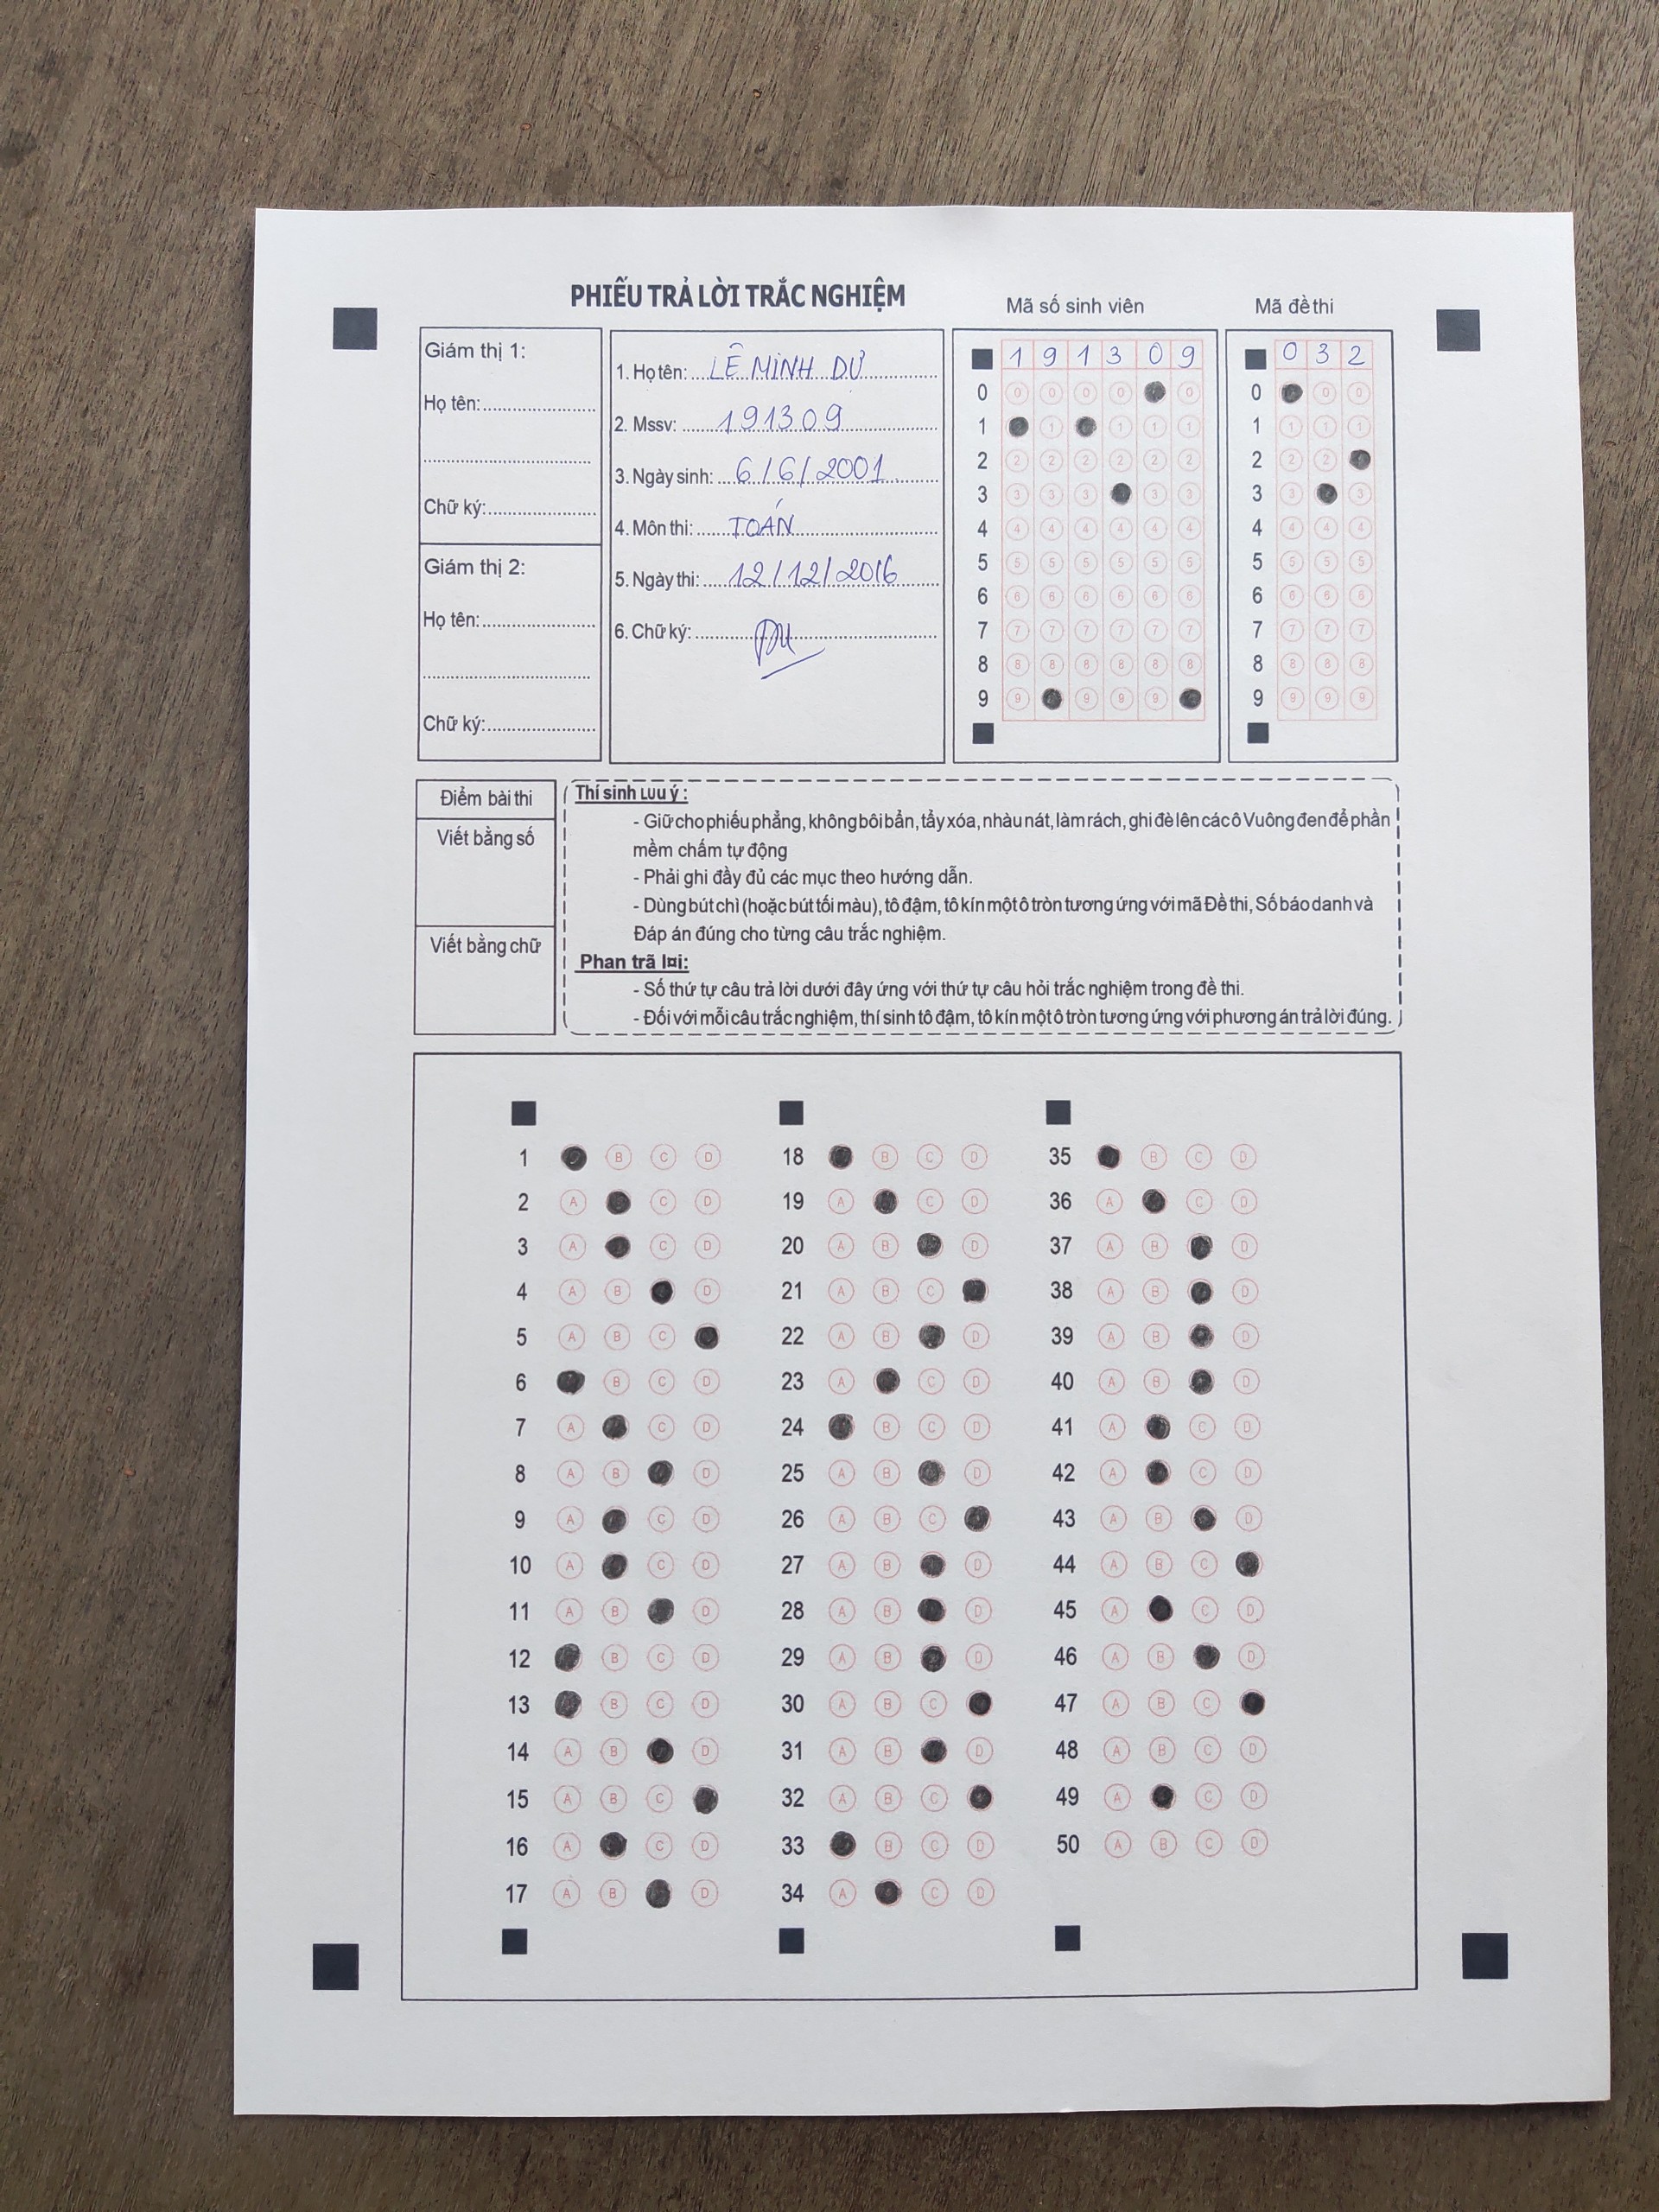 PHIẾU TRẢ LỜI TRẮC NGHIỆM
Mã số sinh viên
Mã đề thi
Giám thị 1:
Họ tên:
Chữ ký:
Giám thị 2:
Họ tên:
Chữ ký:
1. Họ tên: LÊ MINH DƯ
2. Mssv: 191309
3. Ngày sinh: 6/6/2001
4. Môn thi: TOÁN
5. Ngày thi: 12/12/2016
6. Chữ ký:
1 9 1 3 0 9
0 0 0 0 0
1 1 1 1 1
2 2 2 2 2 2 2
3 3 3 3 3 3
4 4 4 4 4 4 4
5 5 5 5 5 5 5
6 6 6 6 6 6 6
7 7 7 7 7 7 7
8 8 8 8 8 8 8
9 9 9 9 9
0 3 2
0 0 0
1 1 1 1
2 2 2
3 3 3
4 4 4 4
5 5 5 5
6 6 6 6
7 7 7 7
8 8 8 8
9 9 9 9
Điểm bài thi
Viết bằng số
Viết bằng chữ
Thí sinh Lưu ý :
- Giữ cho phiếu phẳng, không bôi bẩn, tẩy xóa, nhàu nát, làm rách, ghi đè lên các ô Vuông đen để phần
mềm chấm tự động
- Phải ghi đầy đủ các mục theo hướng dẫn.
- Dùng bút chì (hoặc bút tối màu), tô đậm, tô kín một ô tròn tương ứng với mã Đề thi, Số báo danh và
Đáp án đúng cho từng câu trắc nghiệm.
Phan trã l¤i:
- Số thứ tự câu trả lời dưới đây ứng với thứ tự câu hỏi trắc nghiệm trong đề thi.
- Đối với mỗi câu trắc nghiệm, thí sinh tô đậm, tô kín một ô tròn tương ứng với phương án trả lời đúng.
1 B C D
2 A C D
3 A C D
4 A B D
5 A B C
6 B C D
7 A C D
8 A B D
9 A C D
10 A C D
11 A B D
12 B C D
13 B C D
14 A B D
15 A B C
16 A C D
17 A B D
18 B C D
19 A C D
20 A B D
21 A B C
22 A B D
23 A C D
24 B C D
25 A B D
26 A B C
27 A B D
28 A B D
29 A B D
30 A B C
31 A B D
32 A B C
33 B C D
34 A C D
35 B C D
36 A C D
37 A B D
38 A B D
39 A B D
40 A B D
41 A C D
42 A C D
43 A B D
44 A B C
45 A C D
46 A B D
47 A B C
48 A B C D
49 A C D
50 A B C D